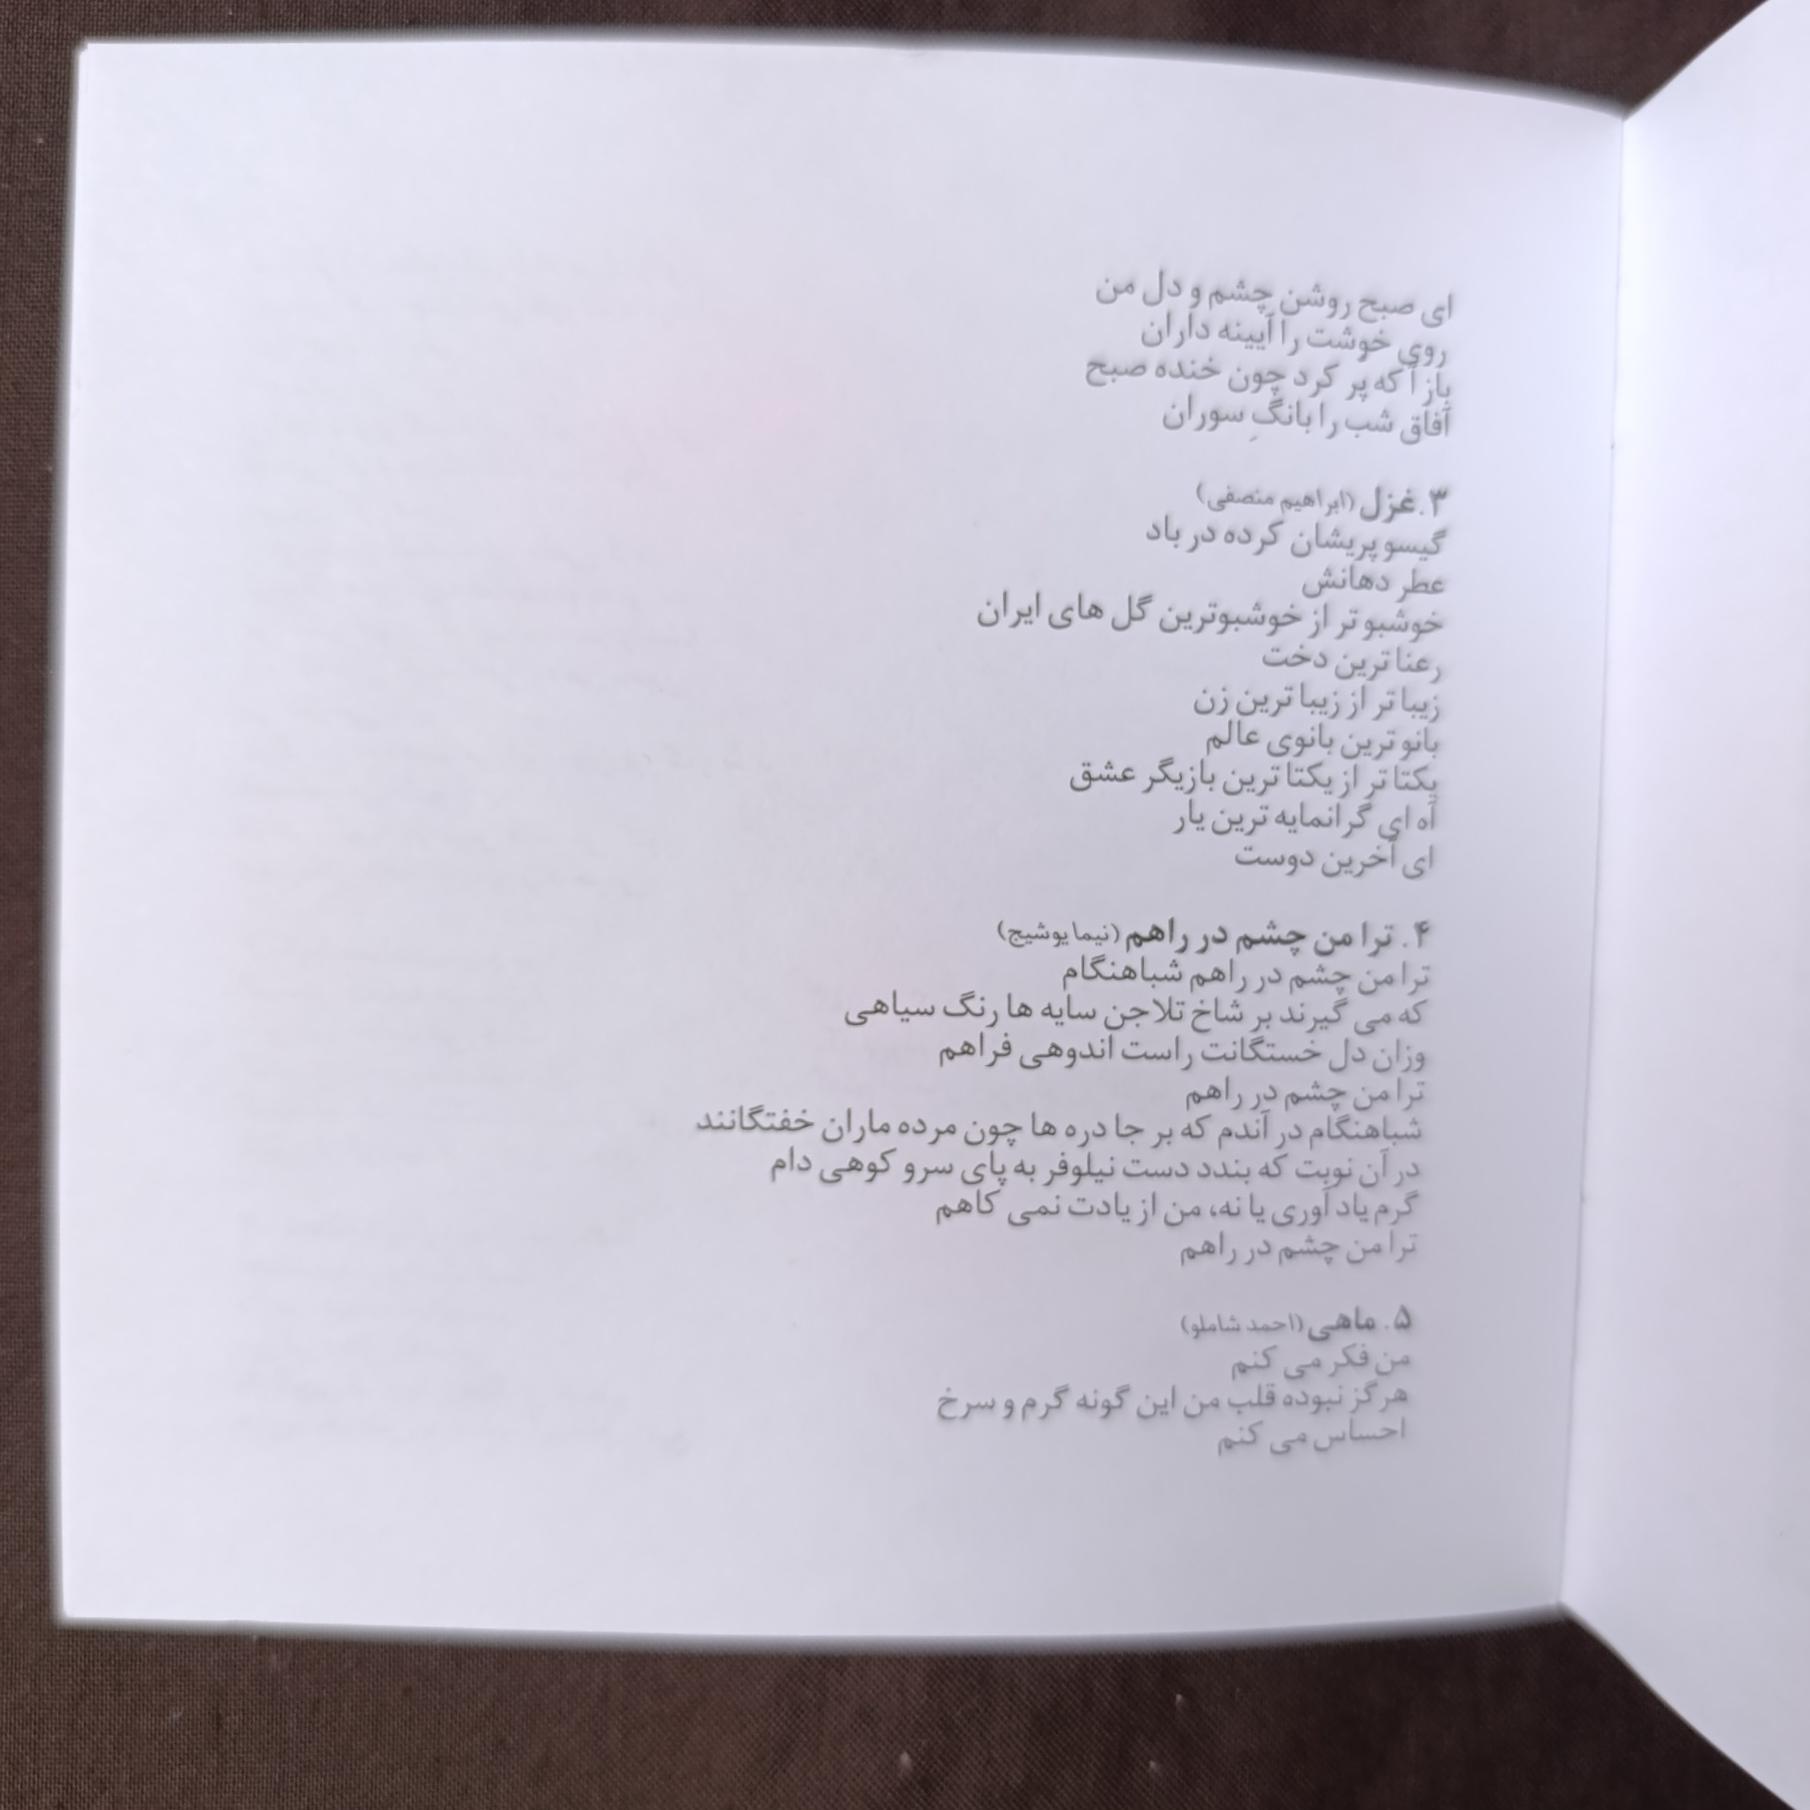 ای صبح روشن چشم و دل من
روی خوشت را آیینه داران
باز آ که پر کرد چون خنده صبح
آفاق شب را بانگِ سوران
۳.غزل (ابراهیم منصفی)
گیسو پریشان کرده در باد
عطر دهانش
خوشبو تر از خوشبوترین گل های ایران
رعنا ترین دخت
زیبا تر از زیبا ترین زن
بانو ترین بانوی عالم
یکتا تر از یکتا ترین بازیگر عشق
آه ای گرانمایه ترین یار
ای آخرین دوست
۴. ترا من چشم در راهم (نیما یوشیج)
ترا من چشم در راهم شباهنگام
که می گیرند بر شاخ تلاجن سایه ها رنگ سیاهی
وزان دل خستگانت راست اندوهی فراهم
ترا من چشم در راهم
شباهنگام در آندم که بر جا دره ها چون مرده ماران خفتگانند
در آن نوبت که بندد دست نیلوفر به پای سرو کوهی دام
گرم یاد آوری یا نه، من از یادت نمی کاهم
ترا من چشم در راهم
۵. ماهی (احمد شاملو)
من فکر می کنم
هرگز نبوده قلب من این گونه گرم و سرخ
احساس می کنم